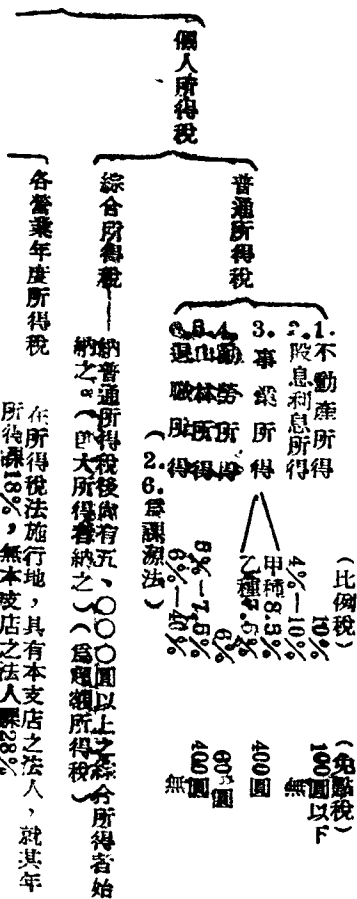 個人所得稅
普通所得稅
(比例稅) (免點稅)
1.不動產所得 10% 100圓以下
2.股息利息所得 4%—10% 無
3.事業所得 甲種8.5% 400圓
乙種7.5%
4.勤勞所得 6% 60圓
5.山林所得 5%—7.5% 400圓
6.退職所得 6%—40% 無
(2.6.爲課源法)
綜合所得稅——納普通所得稅後尚有五、〇〇〇圓以上之綜合所得者始
納之。(巨大所得者納之)(爲超額所得稅)
各營業年度所得稅
在所得稅法施行地,具有本支店之法人,就其年
所得課18%,無本支店之法人課28%